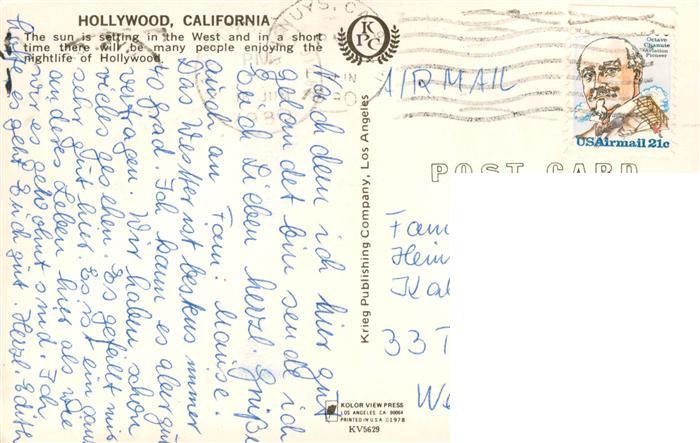 HOLLYWOOD, CALIFORNIA
The sun is setting in the West and in a short
time there will be many people enjoying the
nightlife of Hollywood.
Nach dem ich hier gut
gelandet bin sende ich
Euch Lieben herzl. Grüße
auch an Fam. Mause.
Das Wetter ist bestens immer
40 grad. Ich kann es aber gut
vertragen. Wir haben schon
vieles gesehen. Es gefällt mir
sehr gut hier. Es ist ein ganz
anderes Leben hier als wie
wir es gewohnt sind. Ich
es geht Euch gut. Herzl. Edith
KPC
NUYS, C
PM
1980
Krieg Publishing Company, Los Angeles
KOLOR VIEW PRESS
LOS ANGELES, CA. 90064
PRINTED IN U.S.A. ©1978
KV5629
AIR MAIL
Octave
Chanute
Aviation
Pioneer
USAirmail 21c
POST CARD
Fam
Hein
Kal
33 T
We